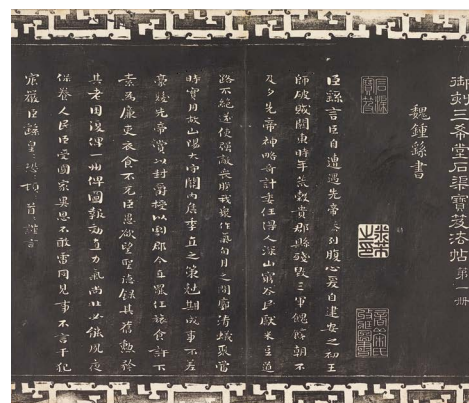 御刻三希堂石渠寶笈法帖 第一冊
魏鍾繇書
石渠寶笈
臣繇言臣自遭遇先帝忝列腹心爰自建安之初王
師破賊關東時年荒穀貴郡縣殘毀三軍餽饟朝不
及夕先帝神略奇計委任得人深山窮谷民獻米豆道
路不絕遂使強敵喪膽我眾作氣旬月之間廓清蟻聚當
時實用故山陽太守關內侯季直之策剋期成事不差
豪髮先帝賞以封爵授以劇郡今直罷任旅食許下
素為廉吏衣食不充臣愚欲望聖德錄其舊勳矜
其老困復俾一州俾圖報効直力氣尚壯必能夙夜
保養人民臣受國家異恩不敢雷同見事不言干犯
宸嚴臣繇皇〻恐〻頓〻首〻謹言